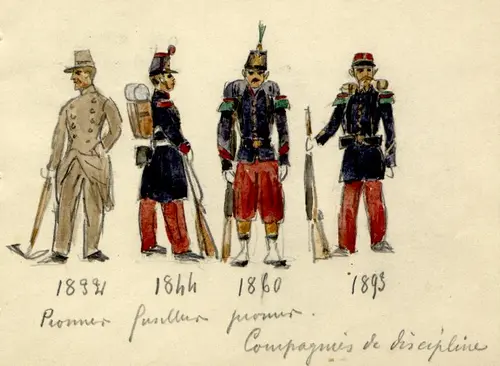 1832 1844 1860 1893
Pionnier fusilier pionnier.
Compagnies de discipline